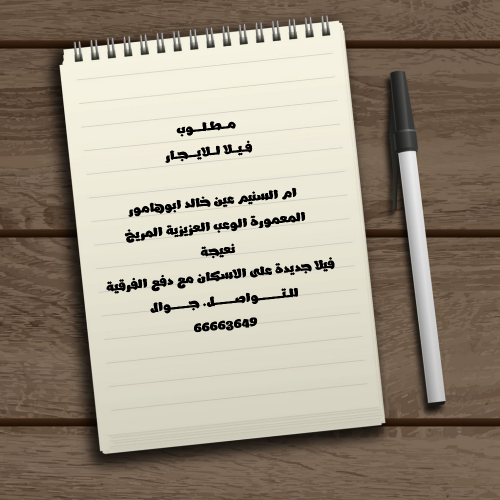 مـطـلـــوب
فـيـلا لـلايـــجـار
ام السنيم عين خالد ابوهامور
المعمورة الوعب العزيزية المريخ
نعيجة
فيلا جديدة على الاسكان مع دفع الفرقية
للـتـــــواصـــــل. جـــــوال
66663649